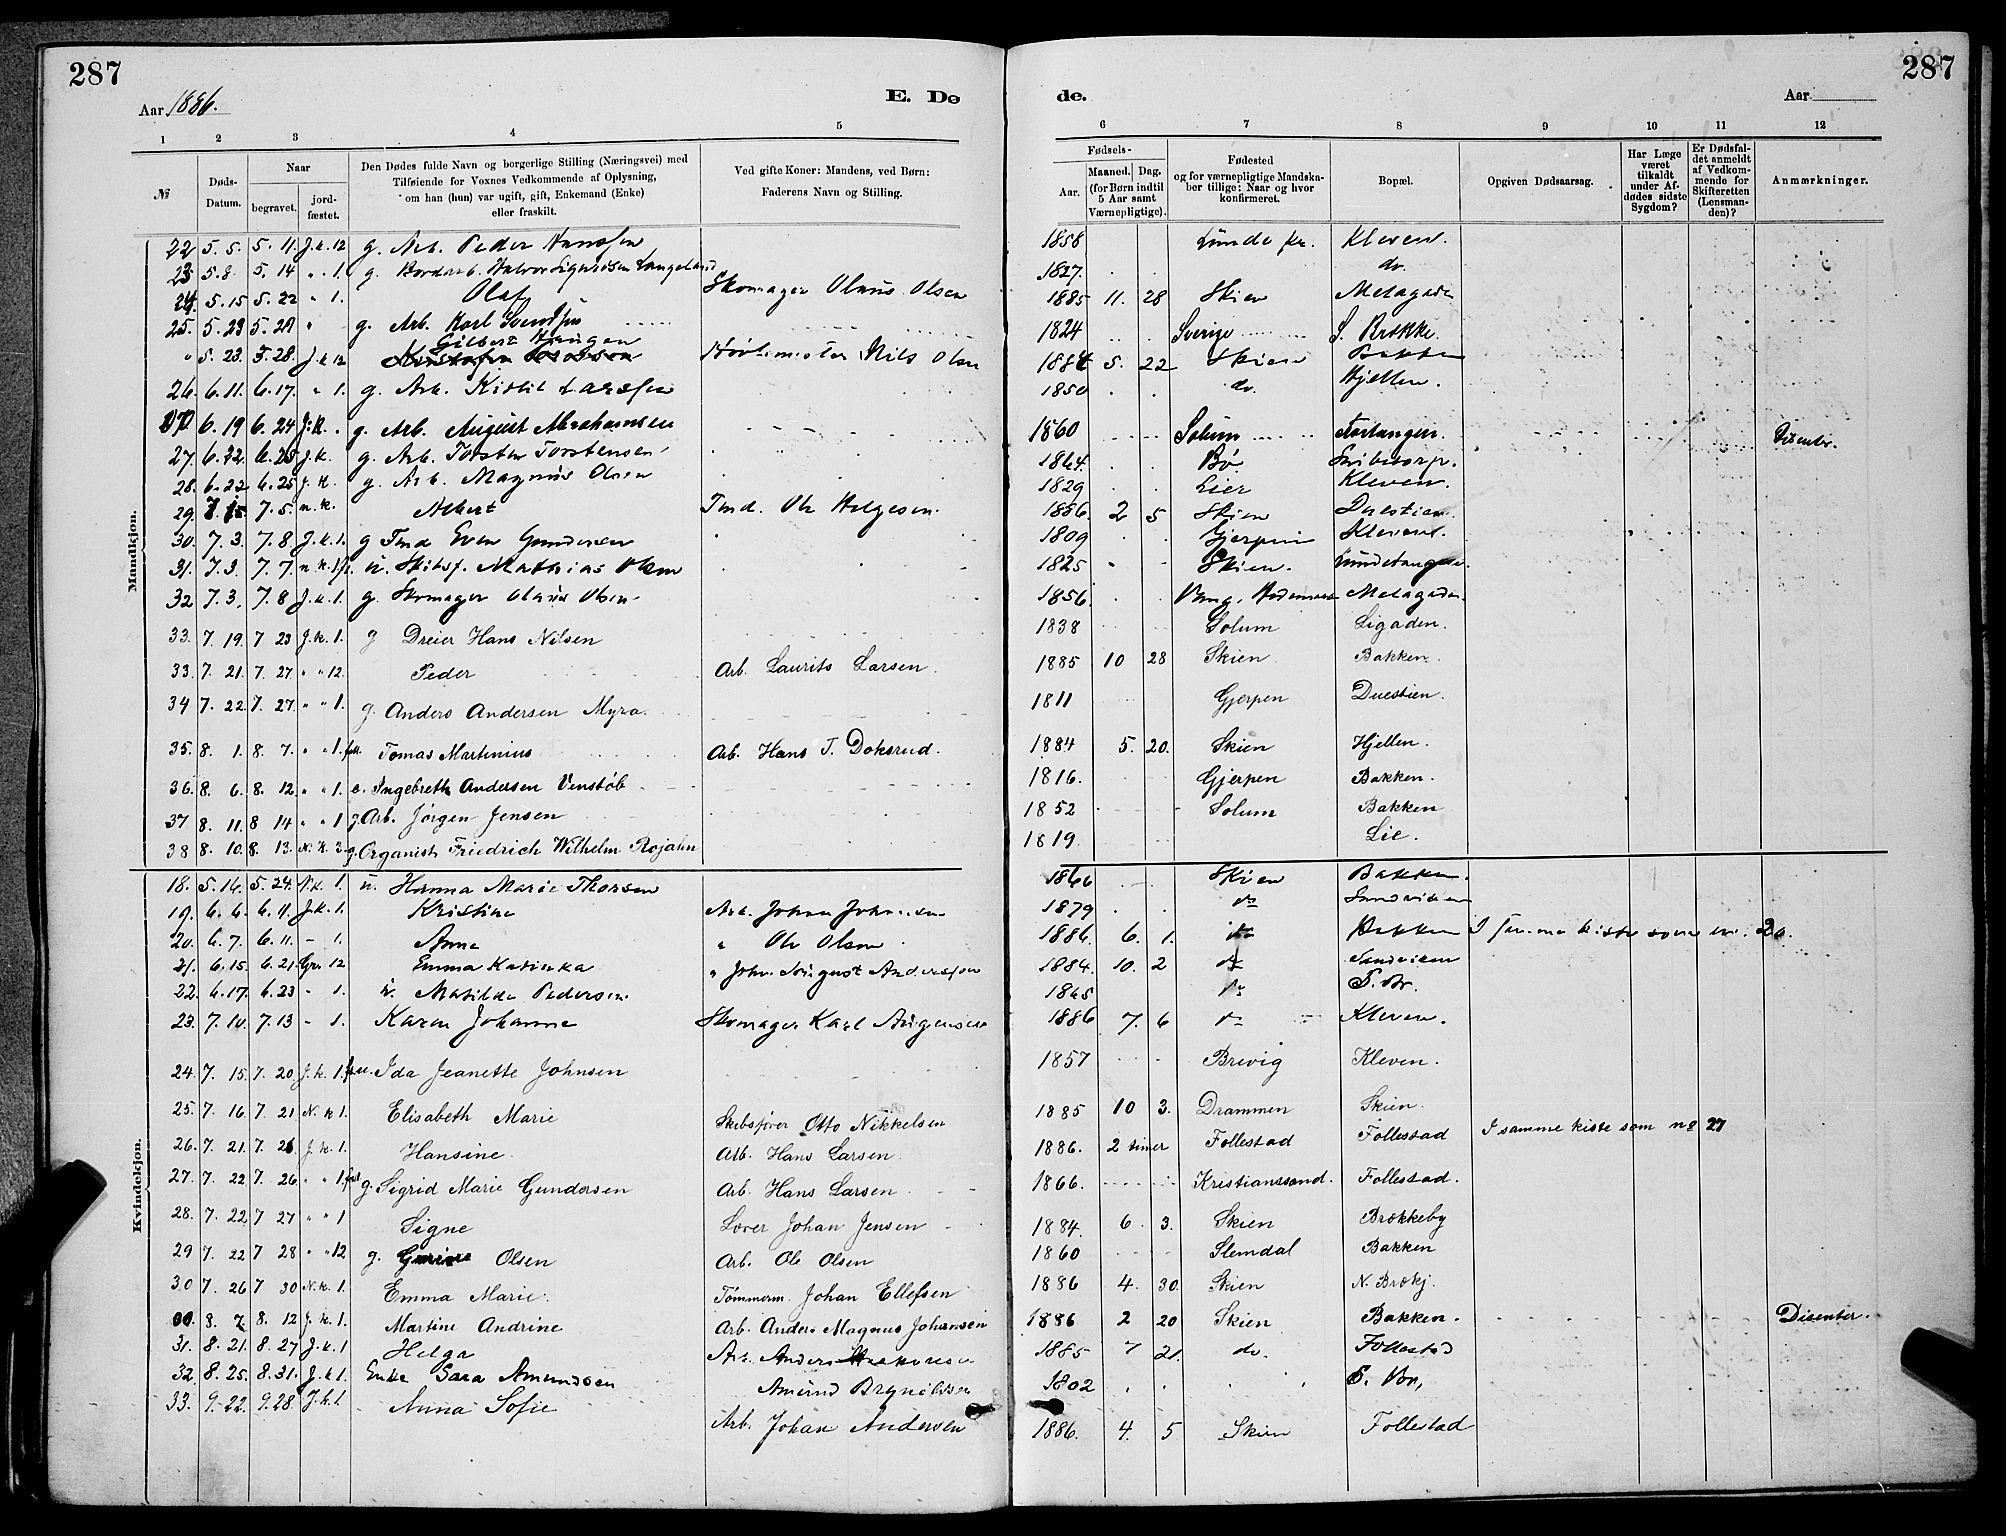 287
287
Aar 1886.
E. Dø
de.
Aar
1 2 3 4 5 6 7 8 9 10 11 12
№
Døds-Datum.
Naar
begravet.
jord-fæstet.
Den Dødes fulde Navn og borgerlige Stilling (Næringsvei) med Tilføiende for Voxnes Vedkommende af Oplysning, om han (hun) var ugift, gift, Enkemand (Enke) eller fraskilt.
Ved gifte Koner: Mandens, ved Børn: Faderens Navn og Stilling.
Fødsels-
Aar.
Maaned.
Dag.
(for Børn indtil 5 Aar samt Værnepligtige).
Fødested og for værnepligtige Mandskaber tillige: Naar og hvor konfirmeret.
Bopæl.
Opgiven Dødsaarsag.
Har Læge været tilkaldt under Afdødes sidste Sygdom?
Er Dødsfaldet anmeldt af Vedkommende for Skifteretten (Lensmanden)?
Anmærkninger.
Mandkjøn.
22 5. 5. 5. 11. J.k. 12 g. Arb. Peder Hansen 1858 Kleven.
23 5. 8. 5. 14 " 1. g. Halvor Sigurdsen Langeland 1827. do.
24 5. 15 5. 22 " 1. Olaf Skomager Olaus Olsen 1885 11. 28 Skien Melagaden
25. 5. 23 5. 29 " g. Arb. Karl Svendsen 1824 Sverige S. Brække.
" 5. 23. 5. 28. J.k. 12 Gilbert Haugen Nils Olsen 1884 5. 22 Skien Bakken
26. 6. 11. 6. 17. " 1. g. Arb. Kittil Larsen 1850 do. Hjellen.
6. 19 6. 24 J.k. g. Arb. August Abrahamsen 1860 Solum Disenter.
27. 6. 22. 6. 25 J.k. g. Arb. Torsten Torstensen 1864. Bø
28. 6. 22 6. 25 J.k. g. Arb. Magnus Olsen 1829 Lier Kleven.
29. 7. 5. n.k. Albert Tmd. Ole Helgesen 1886 2 5 Skien Duestien
30. 7. 3. 7. 8 J.k. 1. g Tmd Even Gundersen 1809 Gjerpen Kleven.
31. 7. 3. 7. 7. n.k. u. Skibsf. Mathias Olsen 1825 Skien. Lundetangen.
32 7. 3. 7. 8 J.k. 1. g. Skomager Olaus Olsen 1856. Vang, Hedemark Melagaden.
33. 7. 19. 7 23 J.k. 1. g Dreier Hans Nilsen 1838 Solum Ligaden.
33. 7. 21. 7. 27. " " 12. Peder Arb. Laurits Larsen. 1885 10 28 Skien Bakken.
34 7. 22. 7. 27. " " 1. g. Anders Andersen Myra. 1811 Gjerpen Duestien.
35. 8. 1. 8. 7. " " 1. Tomas Martinius Arb. Hans T. Doksrud. 1884 5. 20. Skien Hjellen.
36. 8. 6. 8. 12 " " 1. e. Ingebreth Andersen Venstøb 1816. Gjerpen Bakken.
37 8. 11. 8 14 " " 1 g. Arb. Jørgen Jensen 1852 Solum Bakken
38 8. 10. 8. 13. N.k. 3. g. Organist Friedrich Wilhelm Rojahn 1819. Lie.
Kvindekjøn.
18. 5. 16. 5. 24. 1. u. Hanna Marie Thorsen 1866 Skien Bakken.
19. 6. 6. 6. 11. J.k. 1. Kristine Arb. Johan Johnsen 1879 do Sandviken
20. 6. 7. 6. 11. – 1. Anne " Ole Olsen 1886. 6. 1. do Bakken I samme kiste som nr. 20.
21. 6. 15. 6. 21. Gr. 12 Emma Katinka " Joh. August Andersen 1884. 10. 2 do Sandviken
22. 6. 17. 6. 23 – 1. u. Matilde Pedersen. 1865 do
23. 7. 10. 7. 13 – 1. Karen Johanne Skomager Karl Jørgensen 1886 7. 6 do Kleven.
24. 7. 15. 7. 20 J.k. 1. u. Ida Jeanette Johnsen 1857 Brevig Kleven.
25. 7. 16. 7. 21 N.k 1. Elisabeth Marie Skibsfører Otto Nikkelsen 1885 10 3. Drammen Skien.
26. 7. 21. 7. 26 J.k. 1. Hansine. Arb. Hans Larsen. 1886. 2 timer Follestad Follestad I samme kiste som no 27
27. 7. 22 7. 26 " " 1. g. Sigrid Marie Gundersen Arb. Hans Larsen 1866. Kristianssand. Follestad.
28. 7. 22 7 27 " " 1 Signe Sorer Johan Jensen 1884. 6 3. Skien Brækkeby
29 7. 22 7 28 " " 12 g. Olsen Arb. Ole Olsen 1860 Slemdal Bakken
30 7. 26 7 30 N.k. 1. Emma Marie. Tømmerm. Johan Ellefsen 1886 4. 30. Skien N. Brækj.
8. 7 8. 12 J.k. 1. Martine Andrine Arb. Anders Magnus Johansen 1886 2 20 Skien Bakken. Disenter.
31. 8. 21. 8. 27 J.k. 1 Helga Arb. Anders 1885 7 21. do. Follestad
32. 8. 25. 8. 31. J.k. 1 Enke Sara Amundsen Amund Brynildsen 1802
33. 9. 22. 9. 28. J.k. 1 Anna Sofie Arb. Johan Andersen 1886. 4. 5 Skien Follestad